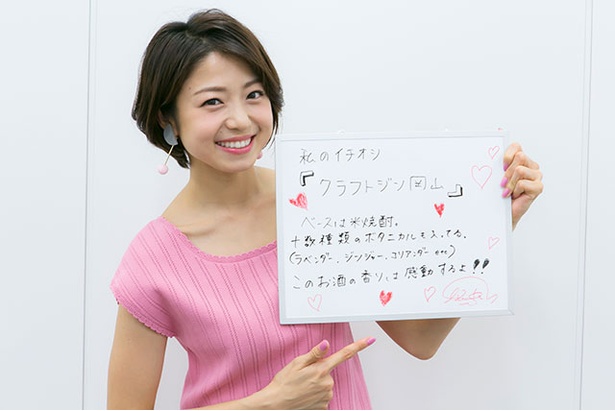 私のイチオシ
『クラフトジン岡山』
ベースは米焼酎。
十数種類のボタニカルも入ってる。
(ラベンダー、ジンジャー、コリアンダー etc)
このお酒の香りは感動するよ!!